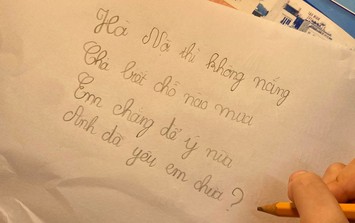 Hà Nội thì không nắng
Cha biết chỗ nào mưa
Em chẳng để ý nữa
Anh đã yêu em chưa?